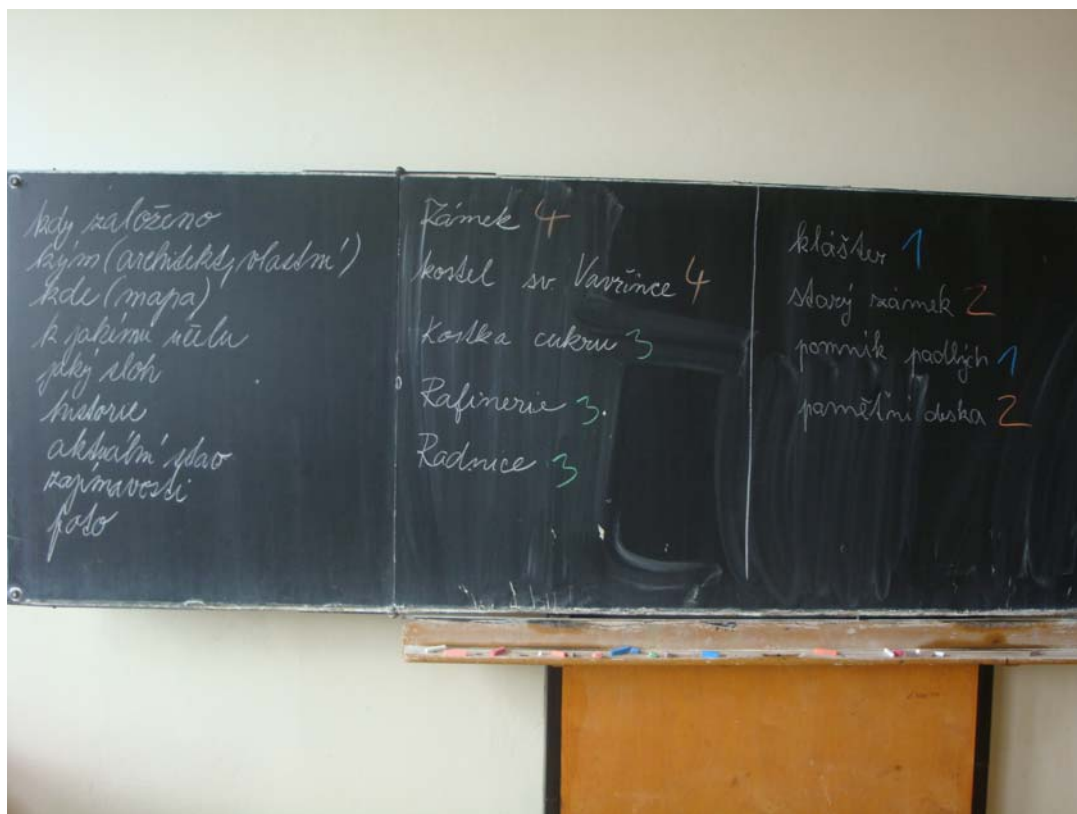 kdy založeno
kým (architekt, vlastní)
kde (mapa)
k jakému účelu
jaký sloh
historie
aktuální stav
zajímavosti
foto
Zámek 4
kostel sv. Vavřince 4
Kostka cukru 3
Rafinerie 3
Radnice 3
klášter 1
starý zámek 2
pomník padlých 1
pamětní deska 2